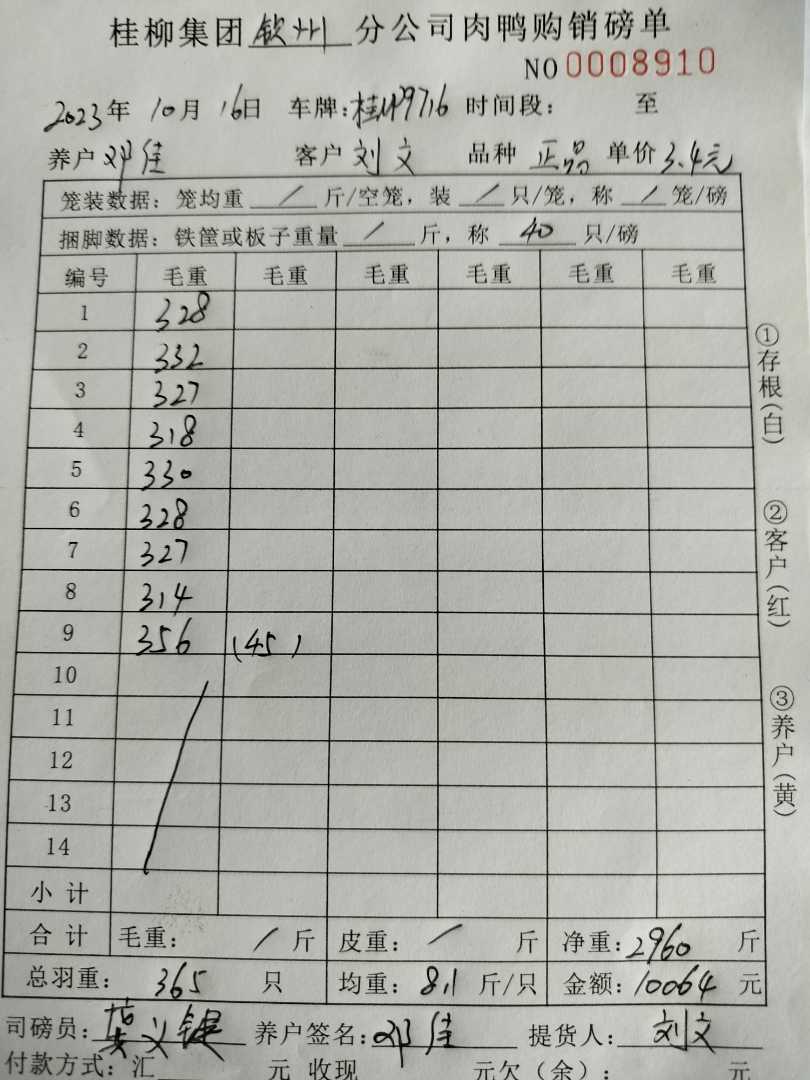 桂柳集团钦州分公司肉鸭购销磅单
NO 0008910
2023年 10月 16日 车牌: 9716 时间段: 至
养户 邓佳 客户 刘文 品种 正品 单价 3.4元
笼装数据: 笼均重 / 斤/空笼, 装 / 只/笼, 称 / 笼/磅
捆脚数据: 铁筐或板子重量 / 斤, 称 40 只/磅
编号 毛重 毛重 毛重 毛重 毛重 毛重
1 328
2 332
3 327
4 318
5 330
6 328
7 327
8 314
9 356 (45)
10
11
12
13
14
小计
合计 毛重: / 斤 皮重: / 斤 净重: 2960 斤
总羽重: 365 只 均重: 8.1 斤/只 金额: 10064 元
司磅员: 黄义键 养户签名: 邓佳 提货人: 刘文
付款方式: 汇 元 收现 元欠(余): 元
①存根(白)
②客户(红)
③养户(黄)